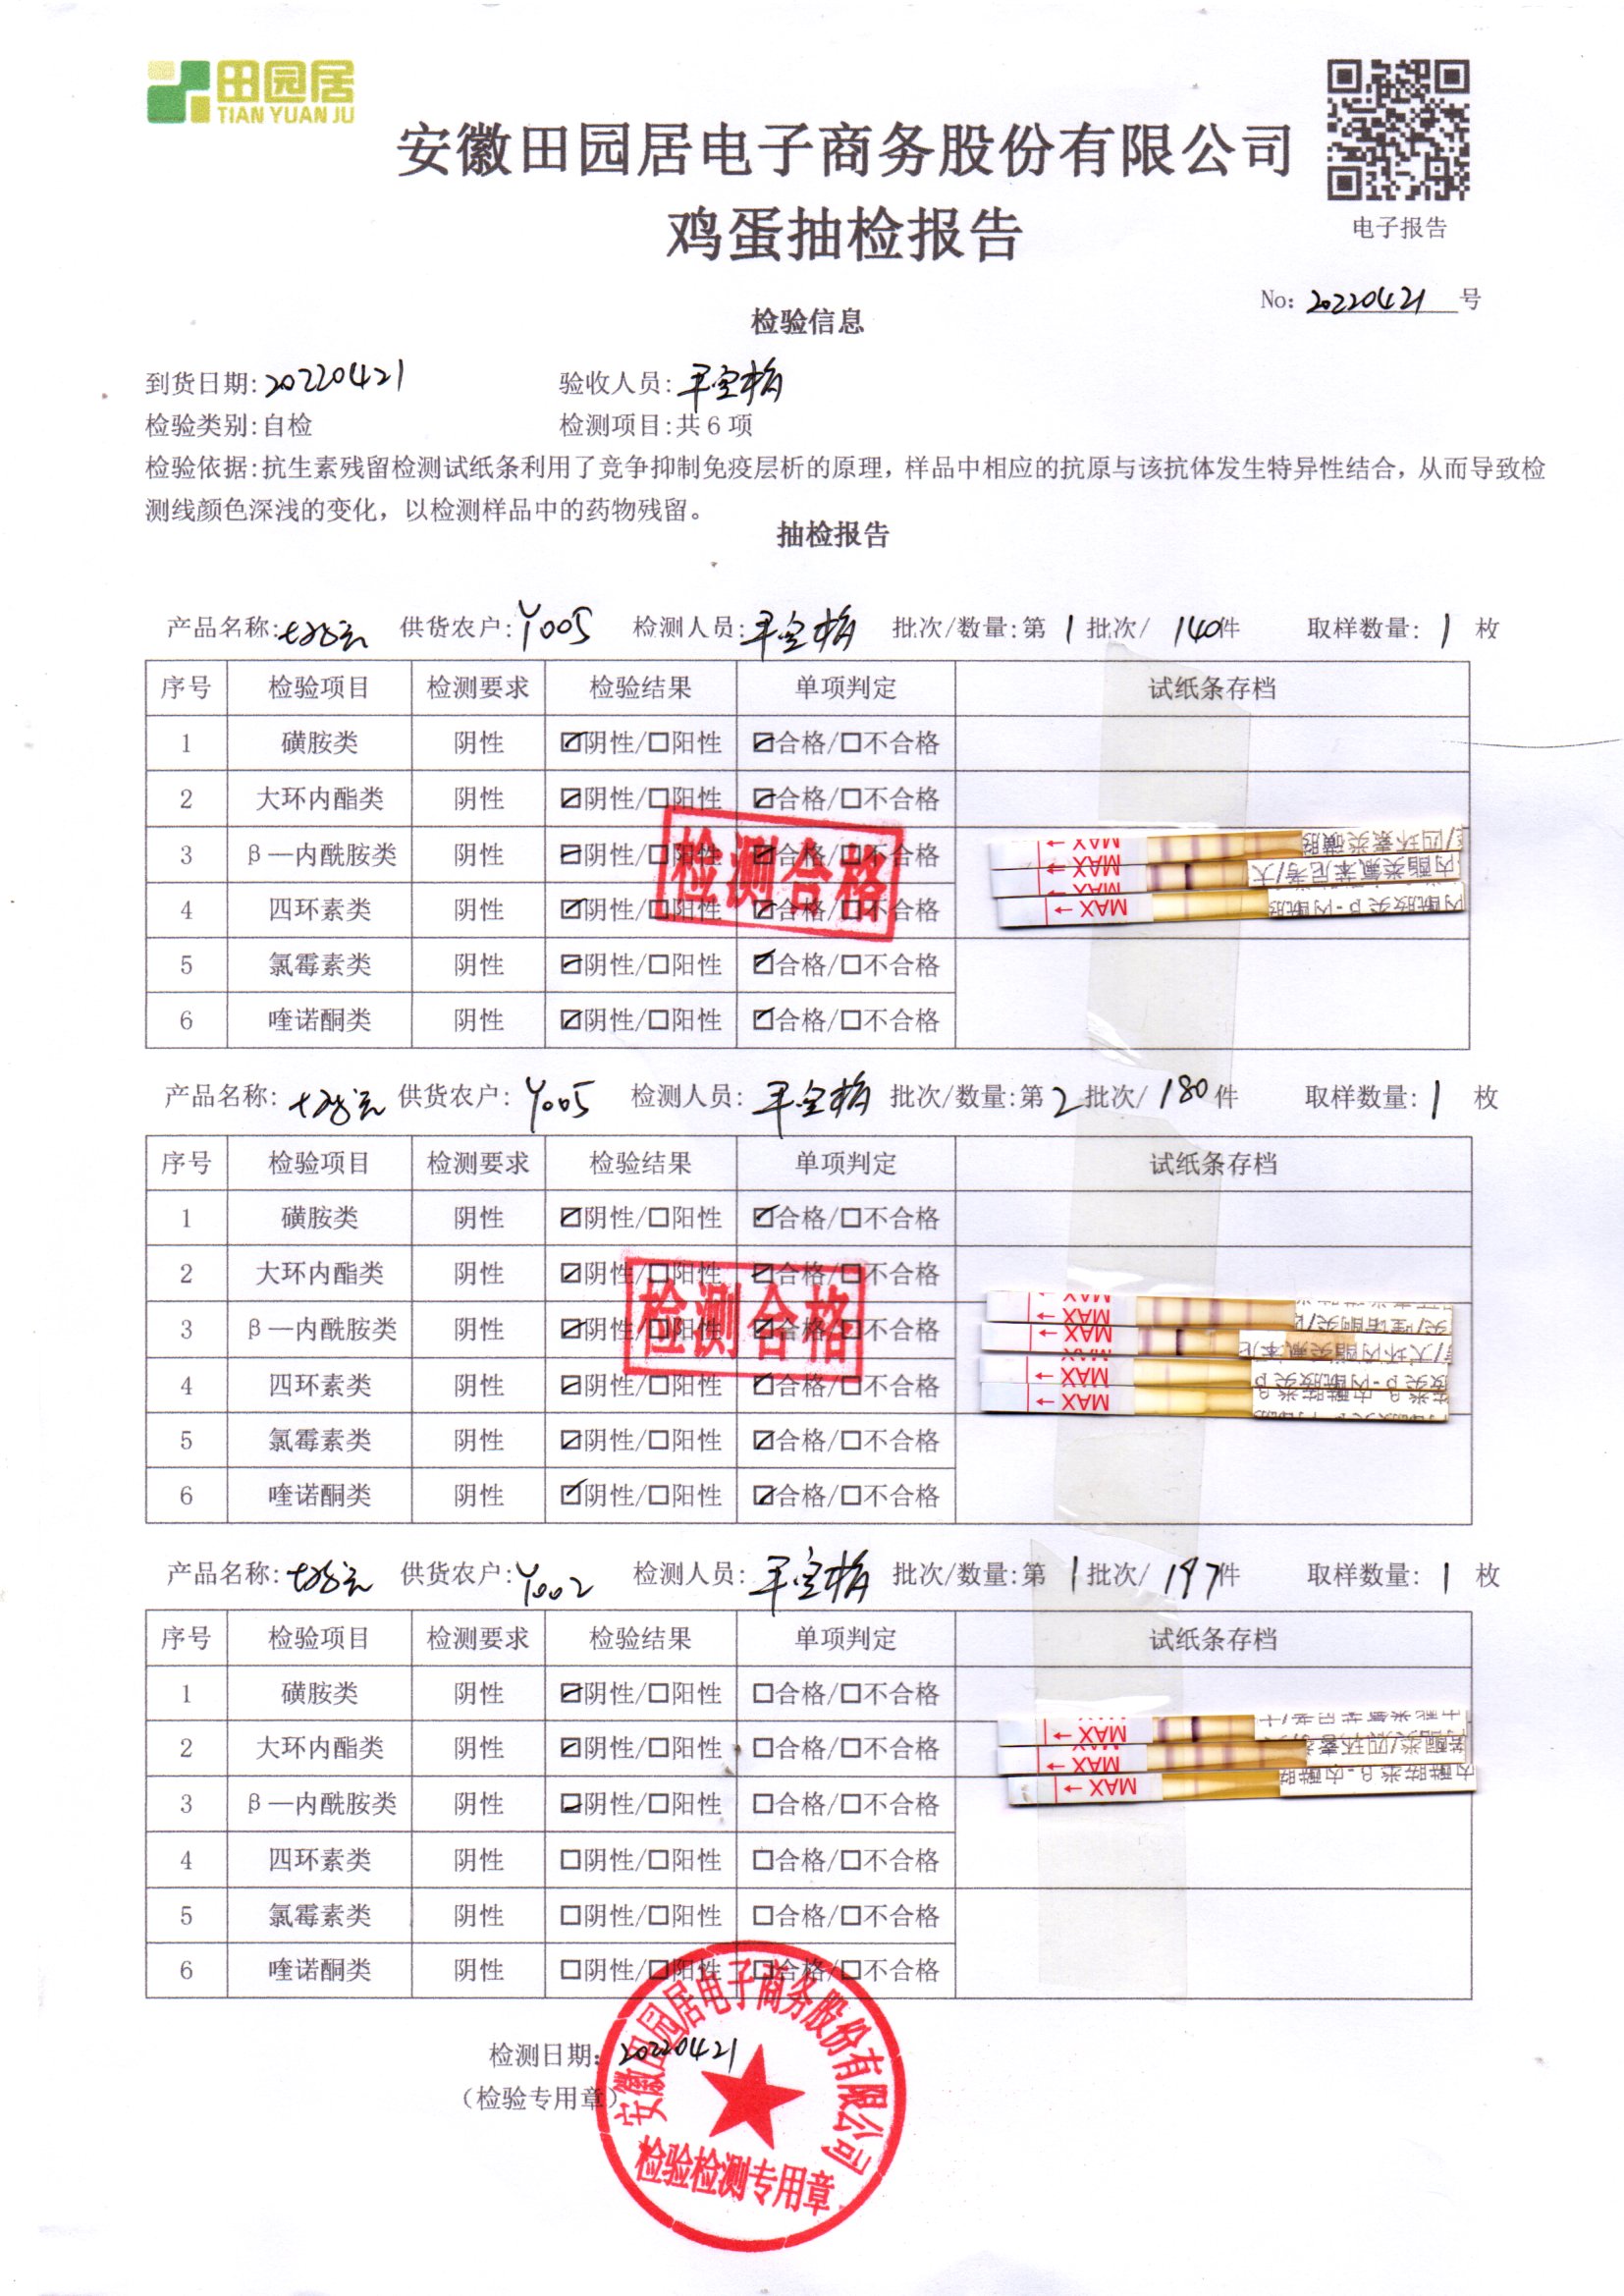 田园居
TIAN YUAN JU
安徽田园居电子商务股份有限公司
鸡蛋抽检报告
电子报告
No: 20220421 号
检验信息
到货日期:20220421 验收人员:
检验类别:自检 检测项目:共6项
检验依据:抗生素残留检测试纸条利用了竞争抑制免疫层析的原理,样品中相应的抗原与该抗体发生特异性结合,从而导致检
测线颜色深浅的变化,以检测样品中的药物残留。
抽检报告
产品名称: 供货农户:Y005 检测人员: 批次/数量:第1批次/140件 取样数量:1枚
序号 检验项目 检测要求 检验结果 单项判定 试纸条存档
1 磺胺类 阴性 ☑阴性/□阳性 ☑合格/□不合格
2 大环内酯类 阴性 ☑阴性/□阳性 ☑合格/□不合格
3 β—内酰胺类 阴性 ☑阴性/□阳性 ☑合格/□不合格
4 四环素类 阴性 ☑阴性/□阳性 ☑合格/□不合格
5 氯霉素类 阴性 ☑阴性/□阳性 ☑合格/□不合格
6 喹诺酮类 阴性 ☑阴性/□阳性 ☑合格/□不合格
检测合格
MAX
MAX
MAX
产品名称: 供货农户:Y005 检测人员: 批次/数量:第2批次/180件 取样数量:1枚
序号 检验项目 检测要求 检验结果 单项判定 试纸条存档
1 磺胺类 阴性 ☑阴性/□阳性 ☑合格/□不合格
2 大环内酯类 阴性 ☑阴性/□阳性 ☑合格/□不合格
3 β—内酰胺类 阴性 ☑阴性/□阳性 ☑合格/□不合格
4 四环素类 阴性 ☑阴性/□阳性 ☑合格/□不合格
5 氯霉素类 阴性 ☑阴性/□阳性 ☑合格/□不合格
6 喹诺酮类 阴性 ☑阴性/□阳性 ☑合格/□不合格
检测合格
MAX
MAX
MAX
MAX
产品名称: 供货农户:Y002 检测人员: 批次/数量:第1批次/197件 取样数量:1枚
序号 检验项目 检测要求 检验结果 单项判定 试纸条存档
1 磺胺类 阴性 ☑阴性/□阳性 □合格/□不合格
2 大环内酯类 阴性 ☑阴性/□阳性 □合格/□不合格
3 β—内酰胺类 阴性 ☑阴性/□阳性 □合格/□不合格
4 四环素类 阴性 □阴性/□阳性 □合格/□不合格
5 氯霉素类 阴性 □阴性/□阳性 □合格/□不合格
6 喹诺酮类 阴性 □阴性/□阳性 □合格/□不合格
MAX
MAX
MAX
检测日期:20220421
(检验专用章)
安徽田园居电子商务股份有限公司
检验检测专用章